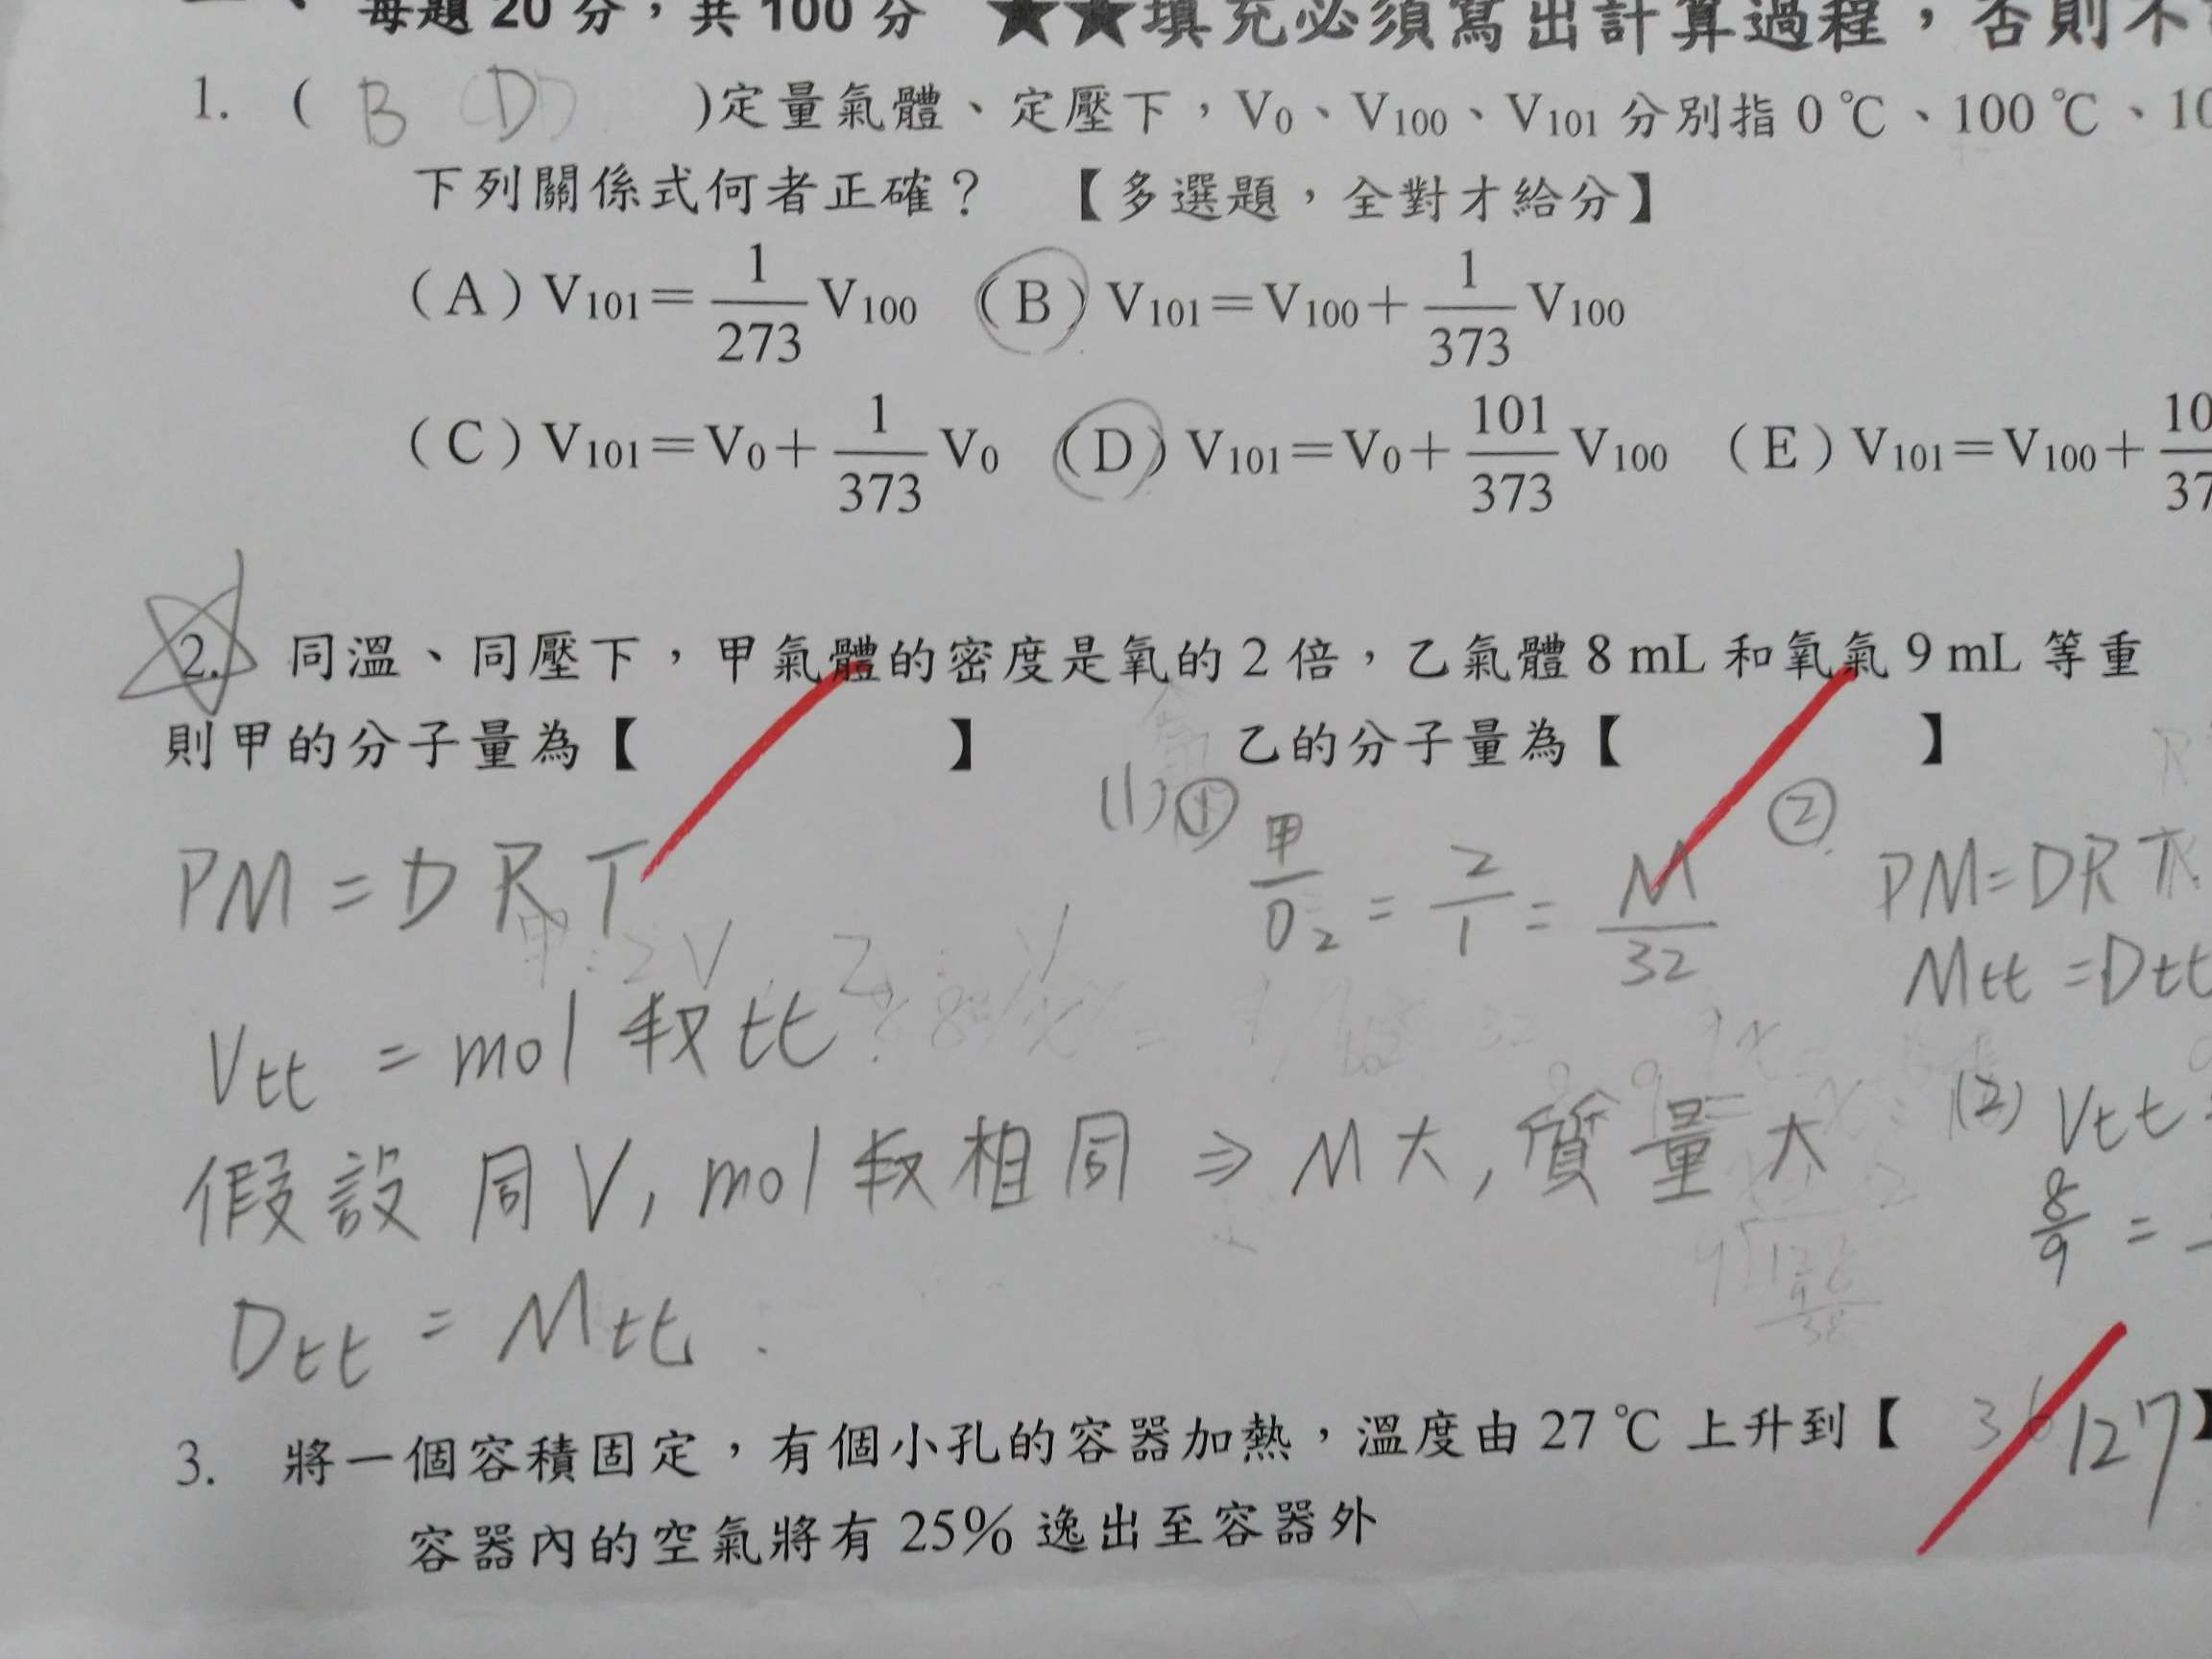 每題 20 分，共 100 分 ★★填充必須寫出計算過程，否則不
1. ( B (D) )定量氣體、定壓下，V0、V100、V101 分別指 0 ℃、100 ℃、10
下列關係式何者正確？ 【多選題，全對才給分】
（A）V101＝1/273 V100 （B）V101＝V100＋1/373 V100
（C）V101＝V0＋1/373 V0 （D）V101＝V0＋101/373 V100 （E）V101＝V100＋10/37
2. 同溫、同壓下，甲氣體的密度是氧的 2 倍，乙氣體 8 mL 和氧氣 9 mL 等重
則甲的分子量為【 】 乙的分子量為【 】
(1) ① 甲/O2 = 2/1 = M/32 ②
PM = DRT PM=DRT
Mtt = Dtt
Vtt = mol 數 tt
假設 同V, mol數相同 ⇒ M大, 質量大
(2) Vtt
8/9 =
Dtt = Mtt.
3. 將一個容積固定，有個小孔的容器加熱，溫度由 27 ℃ 上升到【 127 】
容器內的空氣將有 25% 逸出至容器外